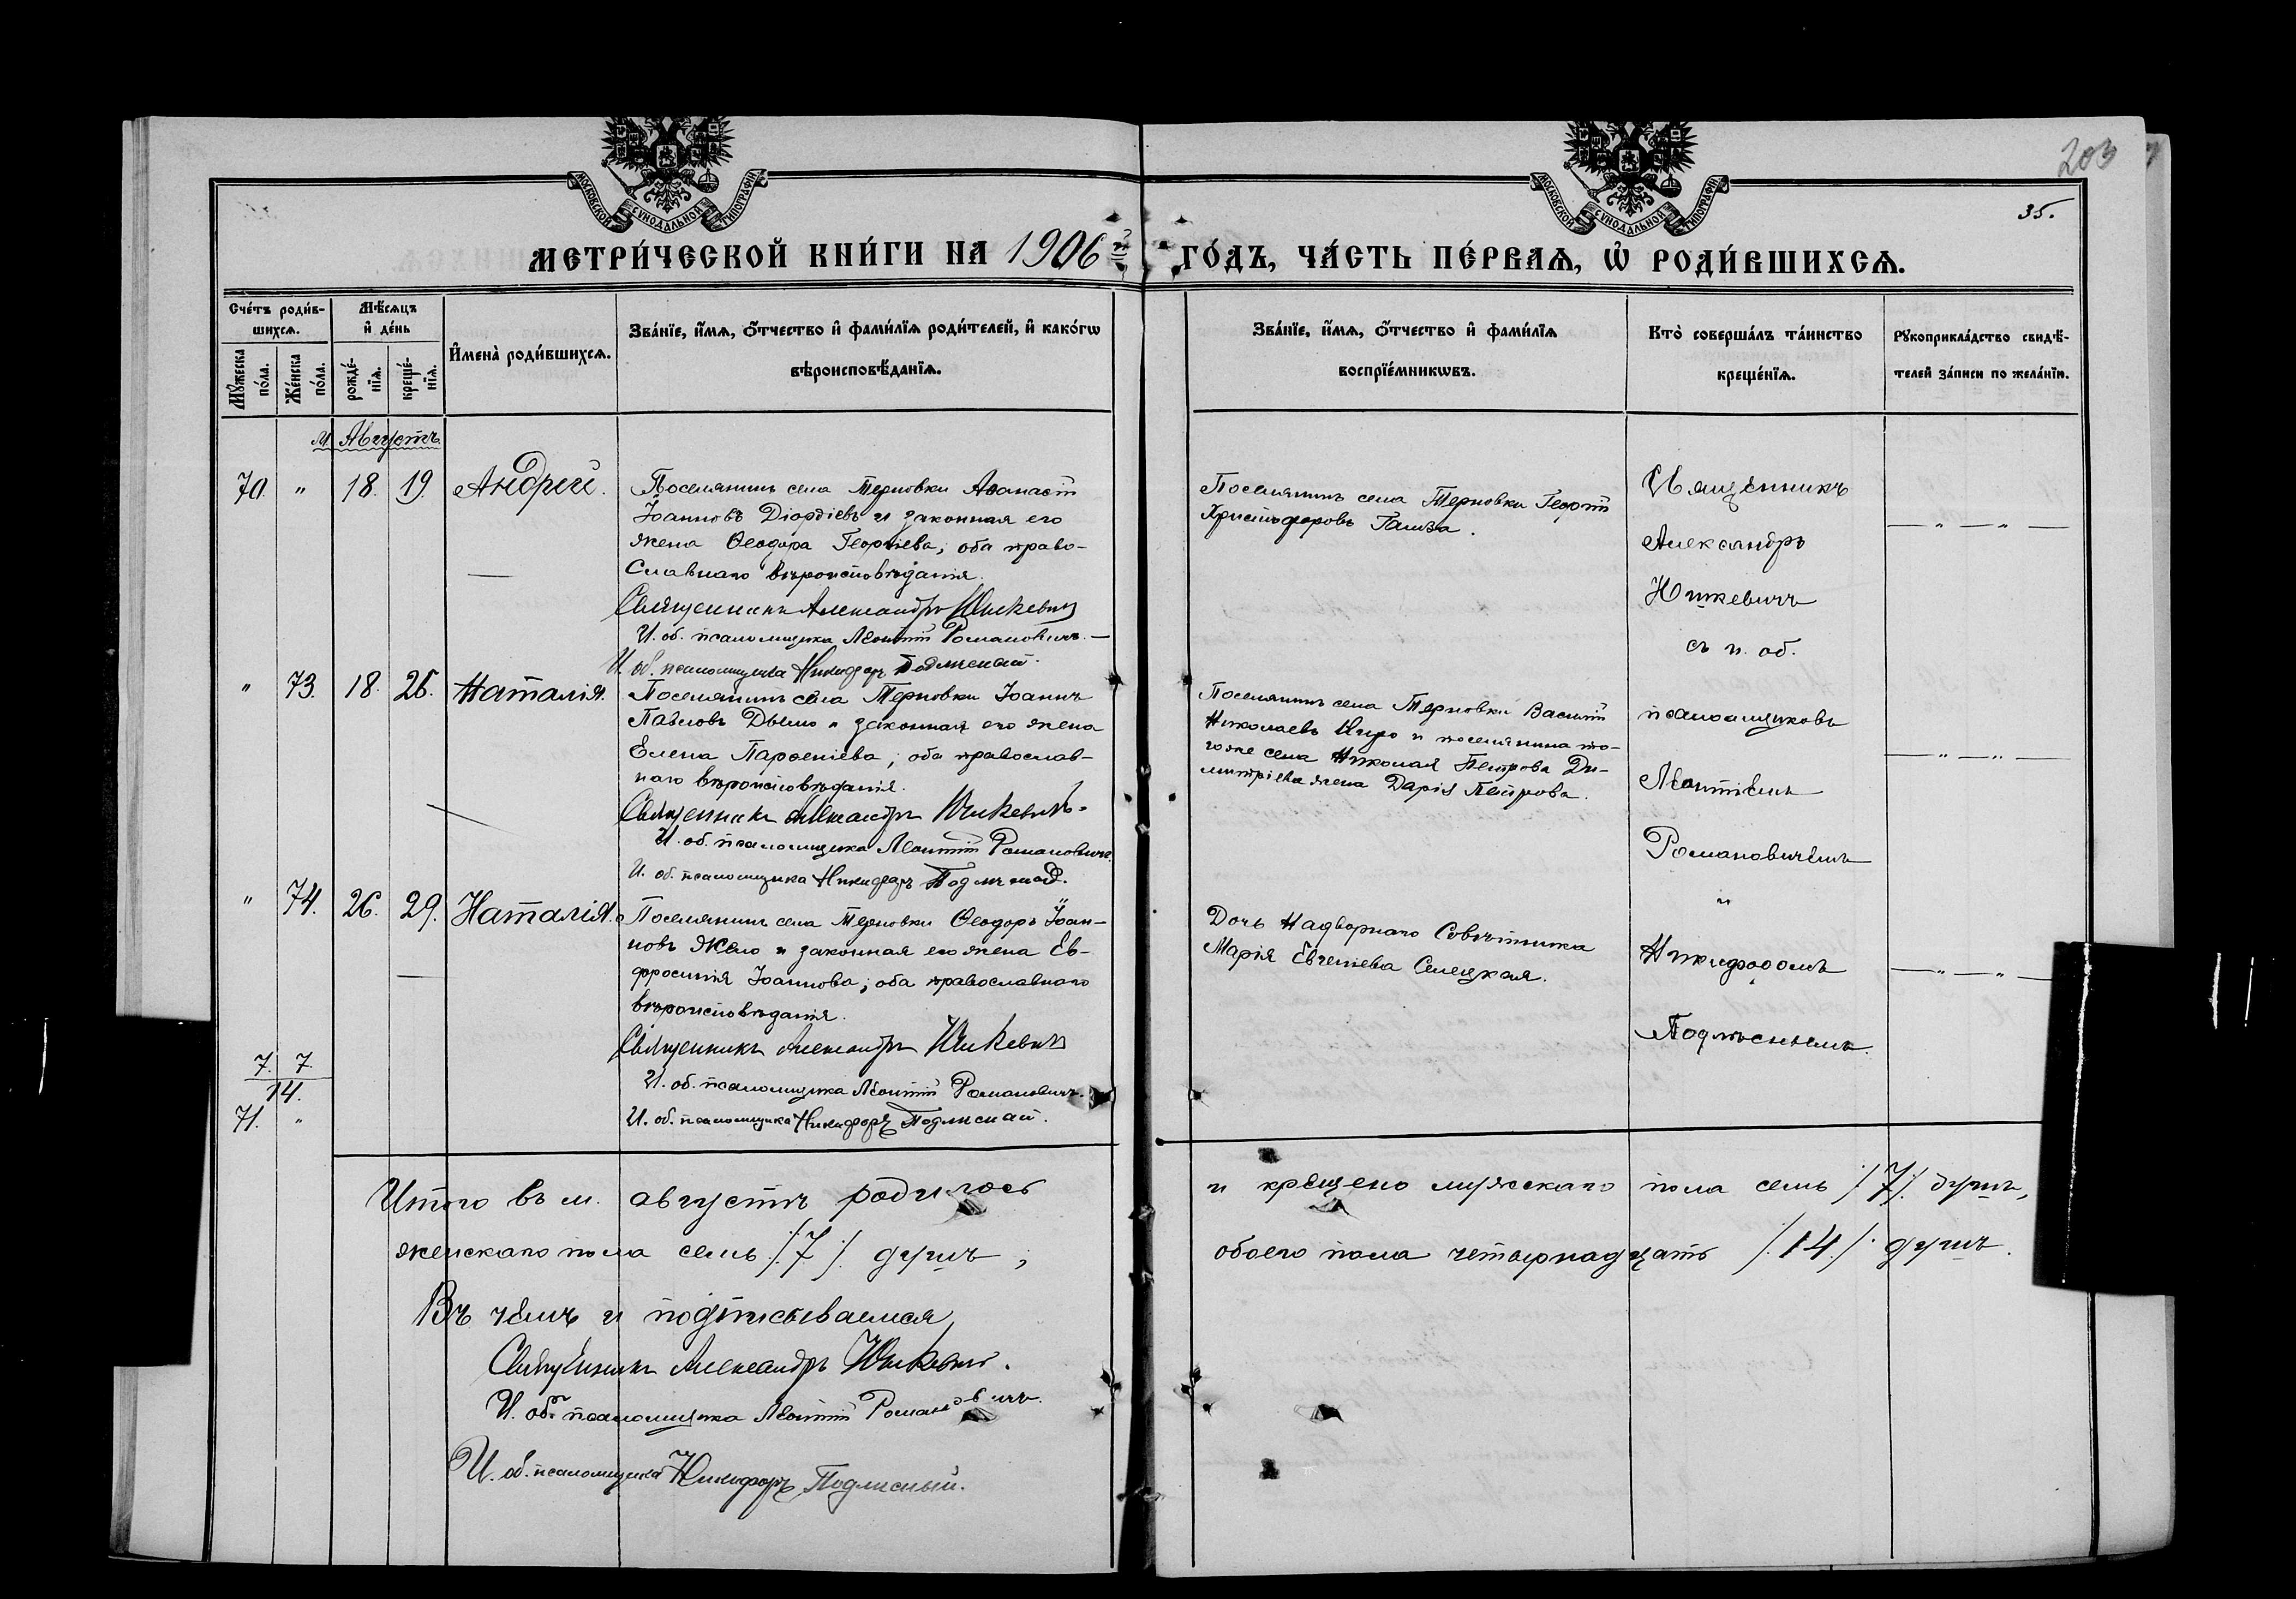 203
35.
МОСКОВСКОЙ СѴНОДАЛЬНОЙ ТИПОГРАФІИ
МОСКОВСКОЙ СѴНОДАЛЬНОЙ ТИПОГРАФІИ
МЕТРИ́ЧЕСКОЙ КНИ́ГИ НА 1906й ГО́ДЪ, ЧА́СТЬ ПЕ́РВАѦ, Ѡ҆ РОДИ́ВШИХСѦ.
Сче́тъ роди́в-
шихсѧ.
Мꙋ́жеска по́ла.
Же́нска по́ла.
Мѣ́сѧцъ
и҆ де́нь
рожде́-
нїѧ.
креще́-
нїѧ.
И҆мена̀ роди́вшихсѧ.
Зва́нїе, и҆́мѧ, ѻ҆́тчество и҆ фами́лїѧ роди́телей, и҆ како́гѡ
вѣроисповѣ́данїѧ.
Зва́нїе, и҆́мѧ, ѻ҆́тчество и҆ фами́лїѧ
воспрїе́мникѡвъ.
Кто̀ соверша́лъ та́инство
креще́нїѧ.
Рꙋкоприкла́дство свидѣ́-
телей за́писи по жела́нїю.
м. Августъ.
70. " 18. 19. Андрей.
Поселянинъ села Терновки Аѳанасій
Іоанновъ Діордіевъ и законная его
жена Ѳеодора Георгіева, оба право-
славнаго вѣроисповѣданія.
Священникъ Александръ Юшкевичъ
И. об. псаломщика Леонтій Романовичъ.
И. об. псаломщика Никифоръ Подлѣсный.
Поселянинъ села Терновки Георгій
Христофоровъ Галза.
" 73. 18. 26. Наталія.
Поселянинъ села Терновки Іоаннъ
Павловъ Дымо и законная его жена
Елена Парѳеніева; оба православ-
наго вѣроисповѣданія.
Священникъ Александръ Юшкевичъ.
И. об. псаломщика Леонтій Романовичъ.
И. об. псаломщика Никифоръ Подлѣсный.
Поселянинъ села Терновки Василій
Николаевъ и поселянина то-
гоже села Николая Петрова Ди-
митріева жена Дарія Петрова.
" 74. 26. 29. Наталія.
Поселянинъ села Терновки Ѳеодоръ Іоан-
новъ Жело и законная его жена Ев-
фросинія Іоаннова; оба православнаго
вѣроисповѣданія.
Священникъ Александръ Юшкевичъ
И. об. псаломщика Леонтій Романовичъ.
И. об. псаломщика Никифоръ Подлѣсный.
Дочь Надворнаго Совѣтника
Марія Евгеніева Селецкая.
Священникъ
Александръ
Юшкевичъ
съ и. об.
псаломщиковъ
Леонтіемъ
Романовичемъ
и
Никифоромъ
Подлѣснымъ.
— " — " —
— " — " —
— " — " —
7. 7.
14.
71. "
Итого въ м. августѣ родилось и крещено мужскаго пола семь /7/ душъ,
женскаго пола семь /7/ душъ; обоего пола четырнадцать /14/ душъ.
Въ чемъ и подписываемся
Священникъ Александръ Юшкевичъ.
И. об. псаломщика Леонтій Романовичъ.
И. об. псаломщика Никифоръ Подлѣсный.